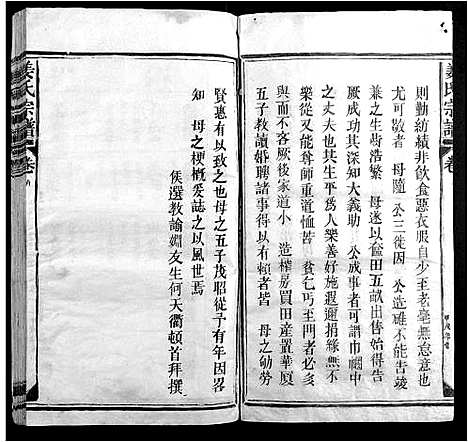 姜氏宗譜
卷
則勤紡績非飲食惡衣服自少至老毫無怠意也
尤可敬者 母隨 公三徙因 公造碓不能告竣
兼之生齒浩繁 母遂以饁田五畝出售始得告
厥成功其深知大義助 公成事者可謂巾幗中
之丈夫也其生平爲人樂善好施遐邇捐緣無不
樂從能尊師重道恤苦 貧乞丐至門者亦必多
與不客厥後家道小 造榨房買田産置華廈
五子教讀婚聘諸事得以有賴者皆 母之劬勞
賢惠有以致之也母之五子茂昭從子有年因畧
知 母之梗概爰誌之以風世焉
候選教諭姻友生何天衢頓首拜撰
姜氏宗譜
卷八